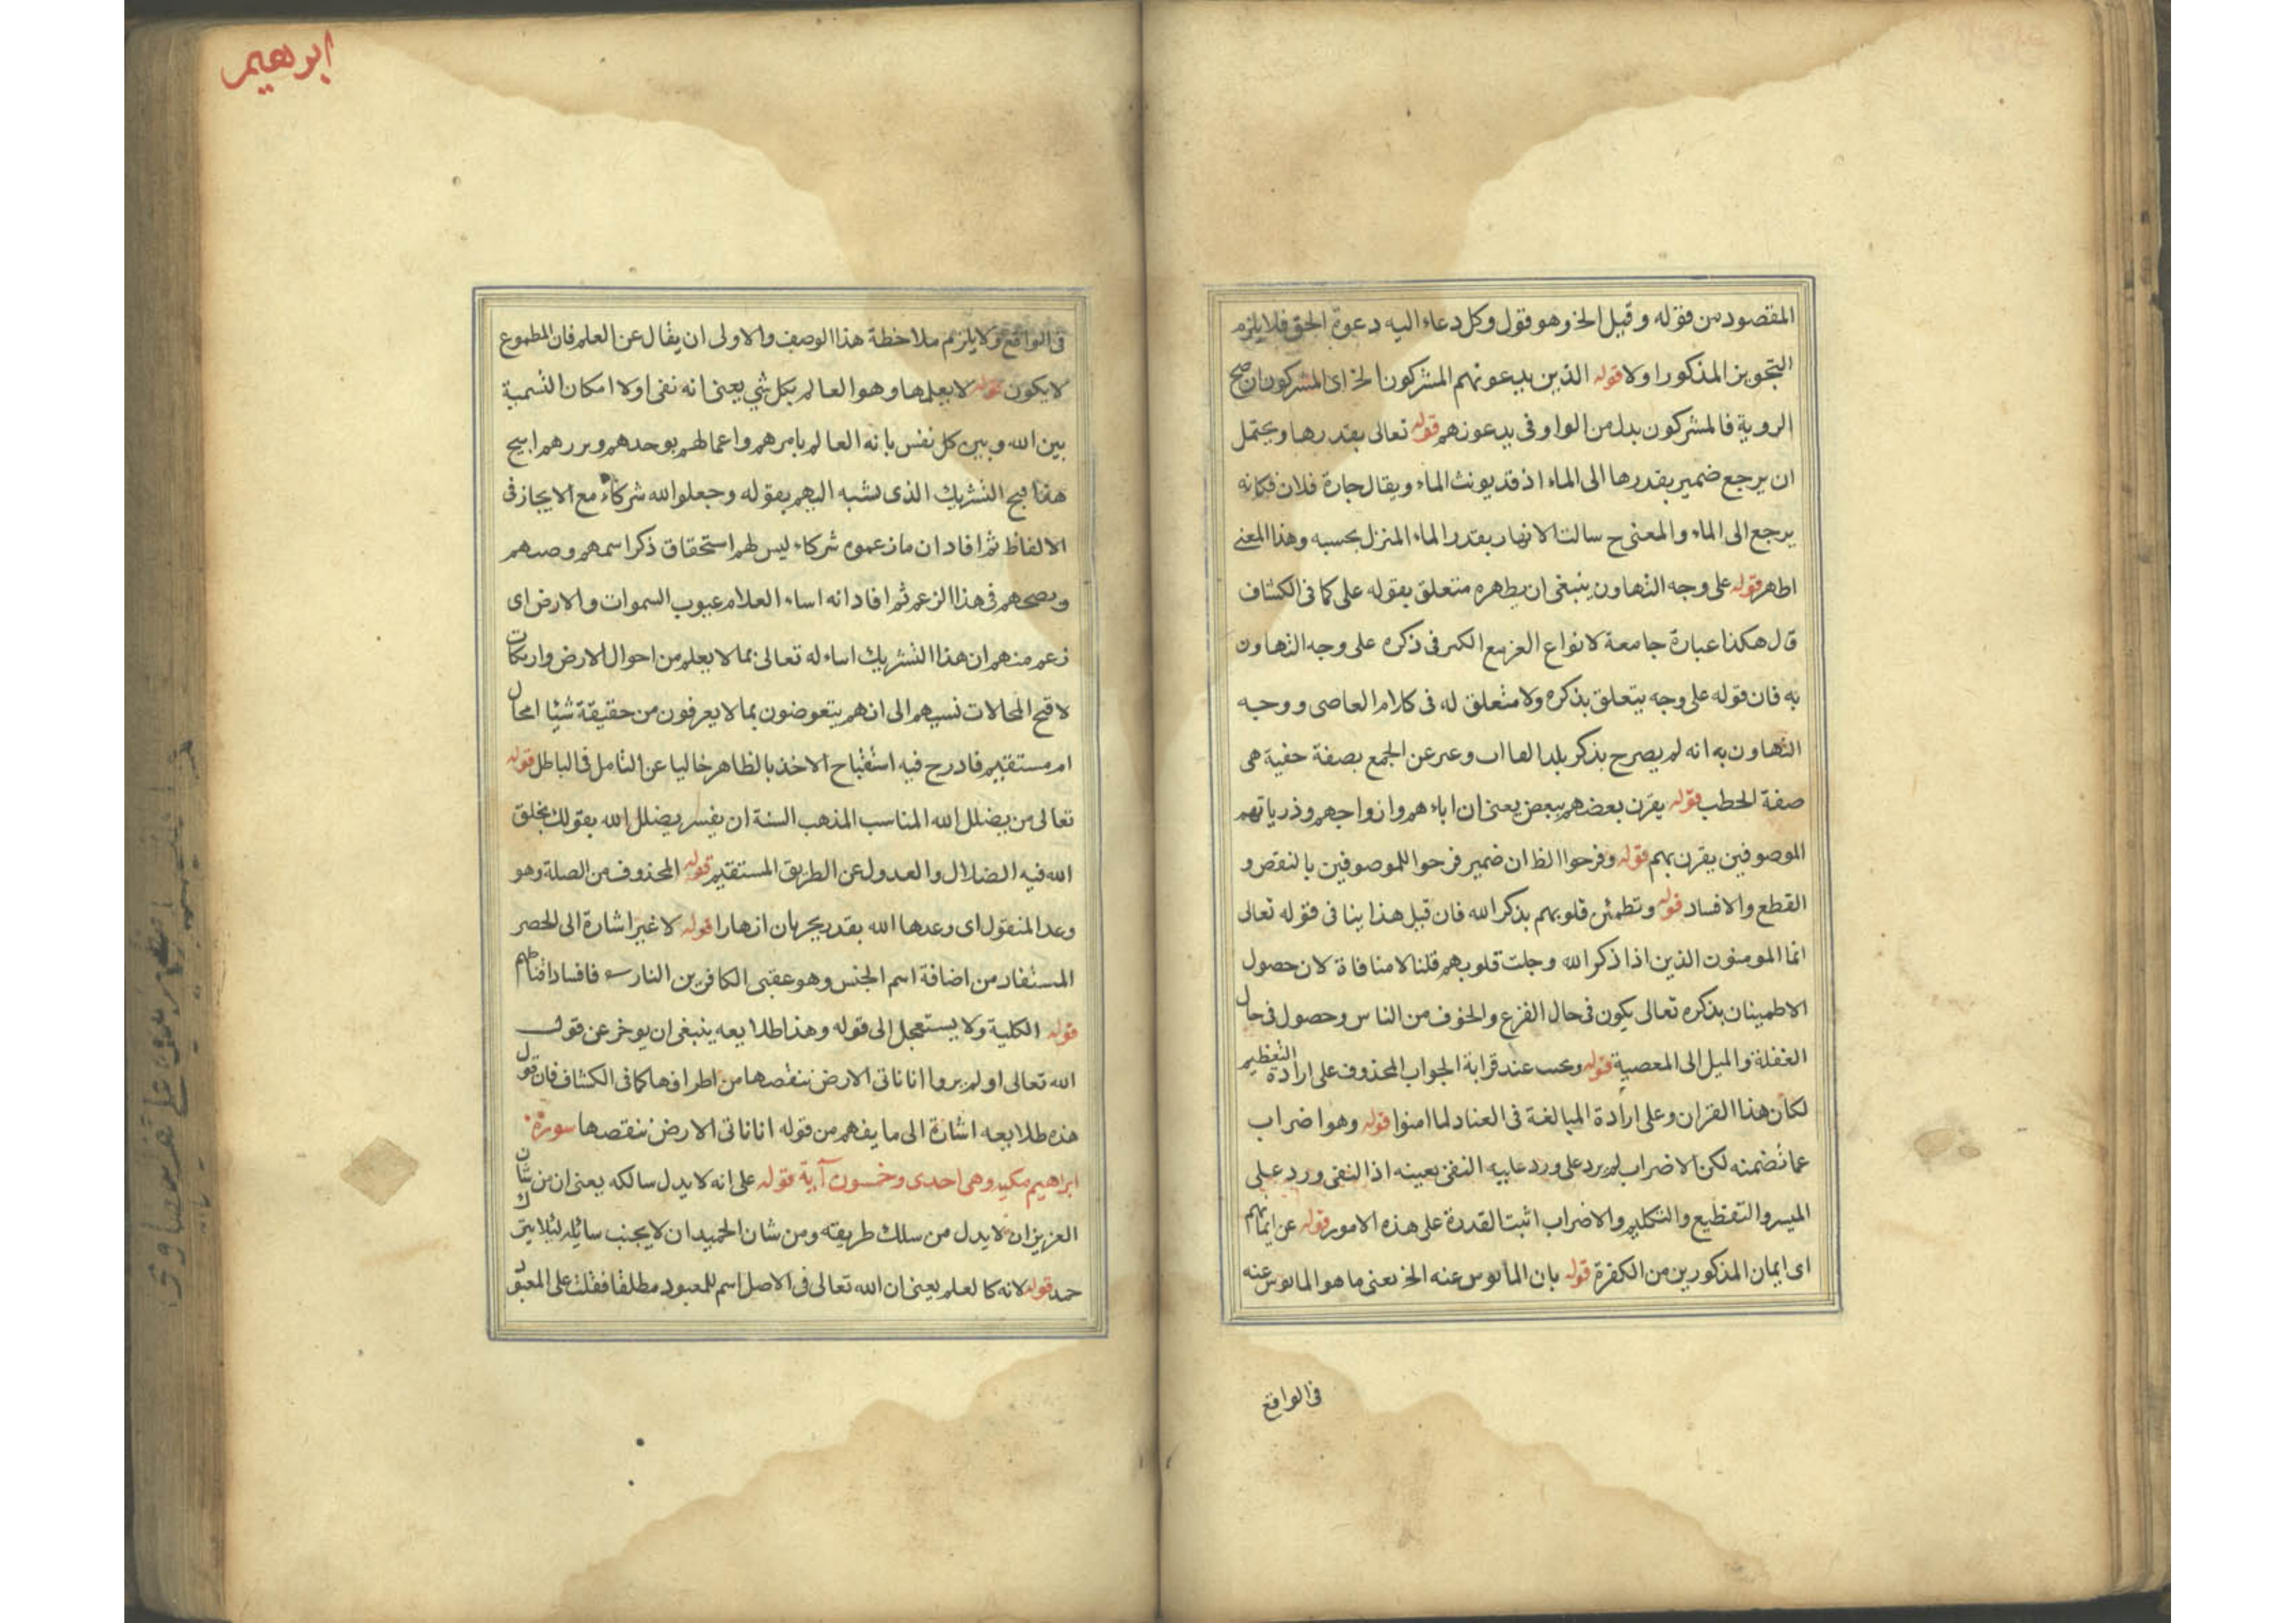 المقصود من قوله وقبل الخ وهو قول وكل دعاء اليه دعوة الحق فلا يلزم
التجويز المذكور اولا قوله الذين يدعونهم المشركون الخ اى المشركون ان صح
الروية فالمشركون بدل من الواو فى يدعونهم قوله تعالى بقدرها ويحتمل
ان يرجع ضمير بقدرها الى الماء اذ قد يونث الماء ويقال جارة فلان فكانه
يرجع الى الماء والمعنى ح سالت الانهار بقدر الماء المنزل بحسبه وهذا المعنى
اظهر قوله على وجه التهاون ينبغى ان يظهره متعلق بقوله على كما فى الكشاف
قال هكذا عبارة جامعة لانواع الكبر فى ذكره على وجه التهاون
به فان قوله على وجه يتعلق بذكره ولا متعلق له فى كلام العاصى ووجه
التهاون به انه لم يصرح بذكر وعبر عن الجمع بصفة خفية هى
صفة الحطب قوله يقرن بعضهم ببعض يعنى ان اباءهم وازواجهم وذرياتهم
الموصوفين يقرن بهم قوله وفرحوا الظ ان ضمير فرحوا للموصوفين بالنقص و
القطع والافساد قوله وتطمئن قلوبهم بذكر الله فان قبل هذا ينافى قوله تعالى
انما المومنون الذين اذا ذكر الله وجلت قلوبهم قلنا لا منافاة لان حصول
الاطمينان بذكره تعالى يكون فى حال الفزع والخوف من الناس وحصول فى حال
الغفلة والميل الى المعصية قوله عند قرابة الجواب المحذوف على ارادة التعظيم
لكان هذا القران وعلى ارادة المبالغة فى العناد لما امنوا قوله وهو اضراب
عما تضمنه لكن الاضراب لم يرد على ورد عليه النفى بعينه اذ النفى ورد على
الميسر والتقطيع والتكليم والاضراب اثبت القدرة على هذه الامور قوله عن ايمانهم
اى ايمان المذكورين من الكفرة قوله بان المايوس عنه الخ يعنى ما هو المايوس عنه
فى الواقع
ابرهيم
فى الواقع ولا يلزم ملاحظة هذا الوصف والاولى ان يقال عن العلم فان المطموع
لا يكون قوله لا يعلمها وهو العالم بكل شي يعنى انه نفى اولا امكان التسمية
بين الله وبين كل نفس بانه العالم بامرهم واعمالهم
هذا قبح التشريك الذى نسبه اليهم بقوله وجعلوا لله شركاء مع الايجاز فى
الالفاظ ثم افاد ان ما زعموه شركاء ليس لهم استحقاق ذكر اسمهم
فى هذا الزعم ثم افاد انه اساء العلام عيوب السموات والارض اى
زعم منهم ان هذا التشريك اساء له تعالى بما لا يعلم من احوال الارض وارتكاب
لاقبح المحالات نسبهم الى انهم يتعوضون بما لا يعرفون من حقيقة شيئا امحال
ام مستقيم فادرج فيه استقباح الاخذ بالظاهر خاليا عن التامل فى الباطل قوله
تعالى من يضلل الله المناسب المذهب السنة ان يفسر يضلل الله بقولك يخلق
الله فيه الضلال والعدول عن الطريق المستقيم قوله المحذوف من الصلة وهو
وعد المنقول اى وعدها الله بقدر يجريان انهارا قوله لا غير اشارة الى الحصر
المستفاد من اضافة اسم الجنس وهو عقبى الكافرين النار فافساد
قوله الكلية ولا يستعجل الى قوله وهذا طلايعه ينبغى ان يوخر عن قول
الله تعالى اولم يروا انا ناتى الارض ننقصها من اطرافها كما فى الكشاف فان قول
هذه طلايعه اشارة الى ما يفهم من قوله انا ناتى الارض ننقصها سورة
ابراهيم مكية وهى احدى وخمسون آية قوله على انه لا يدل سالكه يعنى ان من شان
العزيز ان لا يدل من سلك طريقته ومن شان الحميد ان لا يجنب سائله لئلا يترك
حمد قوله لانه كالعلم يعنى ان الله تعالى فى الاصل اسم للمعبود مطلقا فغلت على المعبود